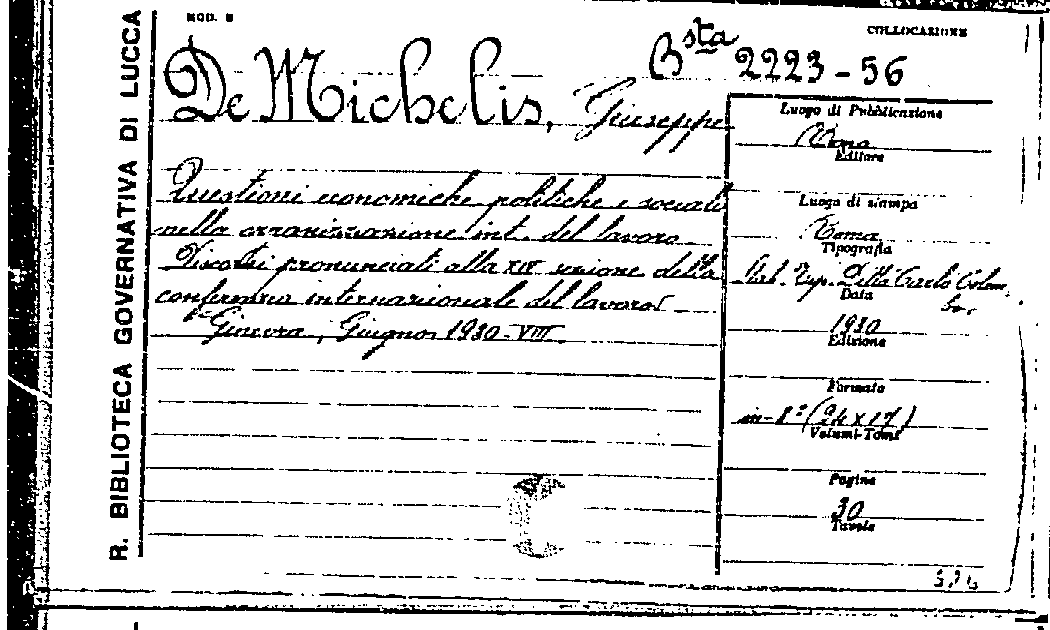 R. BIBLIOTECA GOVERNATIVA DI LUCCA
MOD. B
COLLOCAZIONE
Bsta 2223-56
De Michelis, Giuseppe
Questioni economiche politiche e sociali
nella organizzazione int. del lavoro
Discorsi pronunciati alla XIV unione della
conferenza internazionale del lavoro
Ginevra, Giugno 1930-VIII
Luogo di Pubblicazione
Roma
Editore
Luogo di stampa
Roma
Tipografia
Stab. Tip. Ditta Carlo Colom
bo,
Data
1930
Edizione
Formato
in-8° (24x17)
Volumi-Tomi
Pagine
30
Tavole